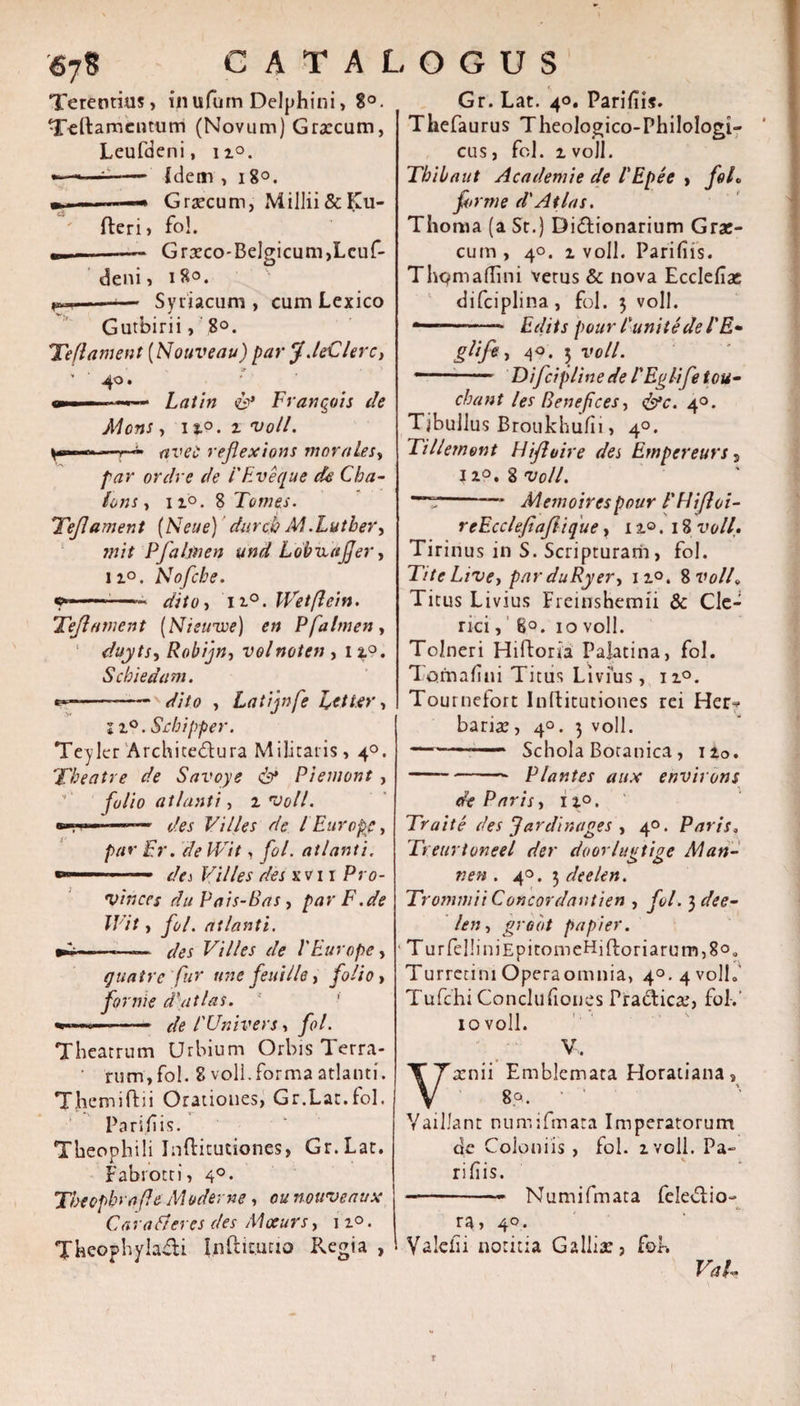 678 CATALOGUS
Terentius, in usum Delphini, 8°.
Testamentum (Novum) Græcum,
Leusdeni, 12°.
——— Idem, 18°.
——— Græcum, Millii & Ku-
steri, fol.
——— Græco-Belgicum, Leus-
deni, 18°.
——— Syriacum, cum Lexico
Gutbirii, 8°.
Testament (Nouveau) par J.leClerc,
4°.
——— Latin & François de
Mons, 12°. 2 voll.
——— avec reflexions morales,
par ordre de l'Evêque de Cha-
lons, 12°. 8 Tomes.
Testament (Neue) durch M.Luther,
mit Psalmen und Lobwasser,
12°. Nosche.
——— dito, 12°. Wetstein.
Testament (Nieuwe) en Psalmen,
duyts, Robijn, vol noten, 12°.
Schiedam.
——— dito, Latijnse Letter,
12°. Schipper.
Teyler Architectura Militaris, 4°.
Theatre de Savoye & Piemont,
folio atlanti, 2 voll.
——— des Villes de l'Europe,
par Fr. de Wit, fol. atlanti.
——— des Villes des XVII Pro-
vinces du Païs-Bas, par F. de
Wit, fol. atlanti.
——— des Villes de l'Europe,
quatre sur une feuille, folio,
forme d'atlas.
——— de l'Univers, fol.
Theatrum Urbium Orbis Terra-
rum, fol. 8 voll. forma atlanti.
Themistii Orationes, Gr. Lat. fol.
Parisiis.
Theophili Institutiones, Gr. Lat.
Fabrotti, 4°.
Theophraste Moderne, ou nouveaux
Caracteres des Mœurs, 12°.
Theophylacti Institutio Regia,
Gr. Lat. 4°. Parisiis.
Thesaurus Theologico-Philologi-
cus, fol. 2 voll.
Thibaut Academie de l'Epée, fol.
forme d'Atlas.
Thoma (a St.) Dictionarium Græ-
cum, 4°. 2 voll. Parisiis.
Thomassini vetus & nova Ecclesiæ
disciplina, fol. 3 voll.
——— Edits pour l'unité de l'E-
glise, 4°. 3 voll.
——— Discipline de l'Eglise tou-
chant les Benefices, &c. 4°.
Tibullus Broukhusii, 4°.
Tillemont Histoire des Empereurs,
12°. 8 voll.
——— Memoires pour l'Histoi-
re Ecclesiastique, 12°. 18 voll.
Tirinus in S. Scripturam, fol.
Tite Live, par du Ryer, 12°. 8 voll.
Titus Livius Freinshemii & Cle-
rici, 8°. 10 voll.
Tolneri Historia Palatina, fol.
Tomasini Titus Livius, 12°.
Tournefort Institutiones rei Her-
bariæ, 4°. 3 voll.
——— Schola Botanica, 12o.
——— Plantes aux environs
de Paris, 12°.
Traité des Jardinages, 4°. Paris.
Treurtoneel der doorlugtige Man-
nen. 4°. 3 deelen.
Trommii Concordantien, fol. 3 dee-
len, groot papier.
Tursellini Epitome Historiarum, 8°.
Turretini Opera omnia, 4°. 4 voll.
Tuschi Conclusiones Practicæ, fol.
10 voll.
V.
Vænii Emblemata Horatiana,
8°.
Vaillant numismata Imperatorum
de Coloniis, fol. 2 voll. Pa-
risiis.
——— Numismata selectio-
ra, 4°.
Valesii notitia Galliæ, fol.
Val-